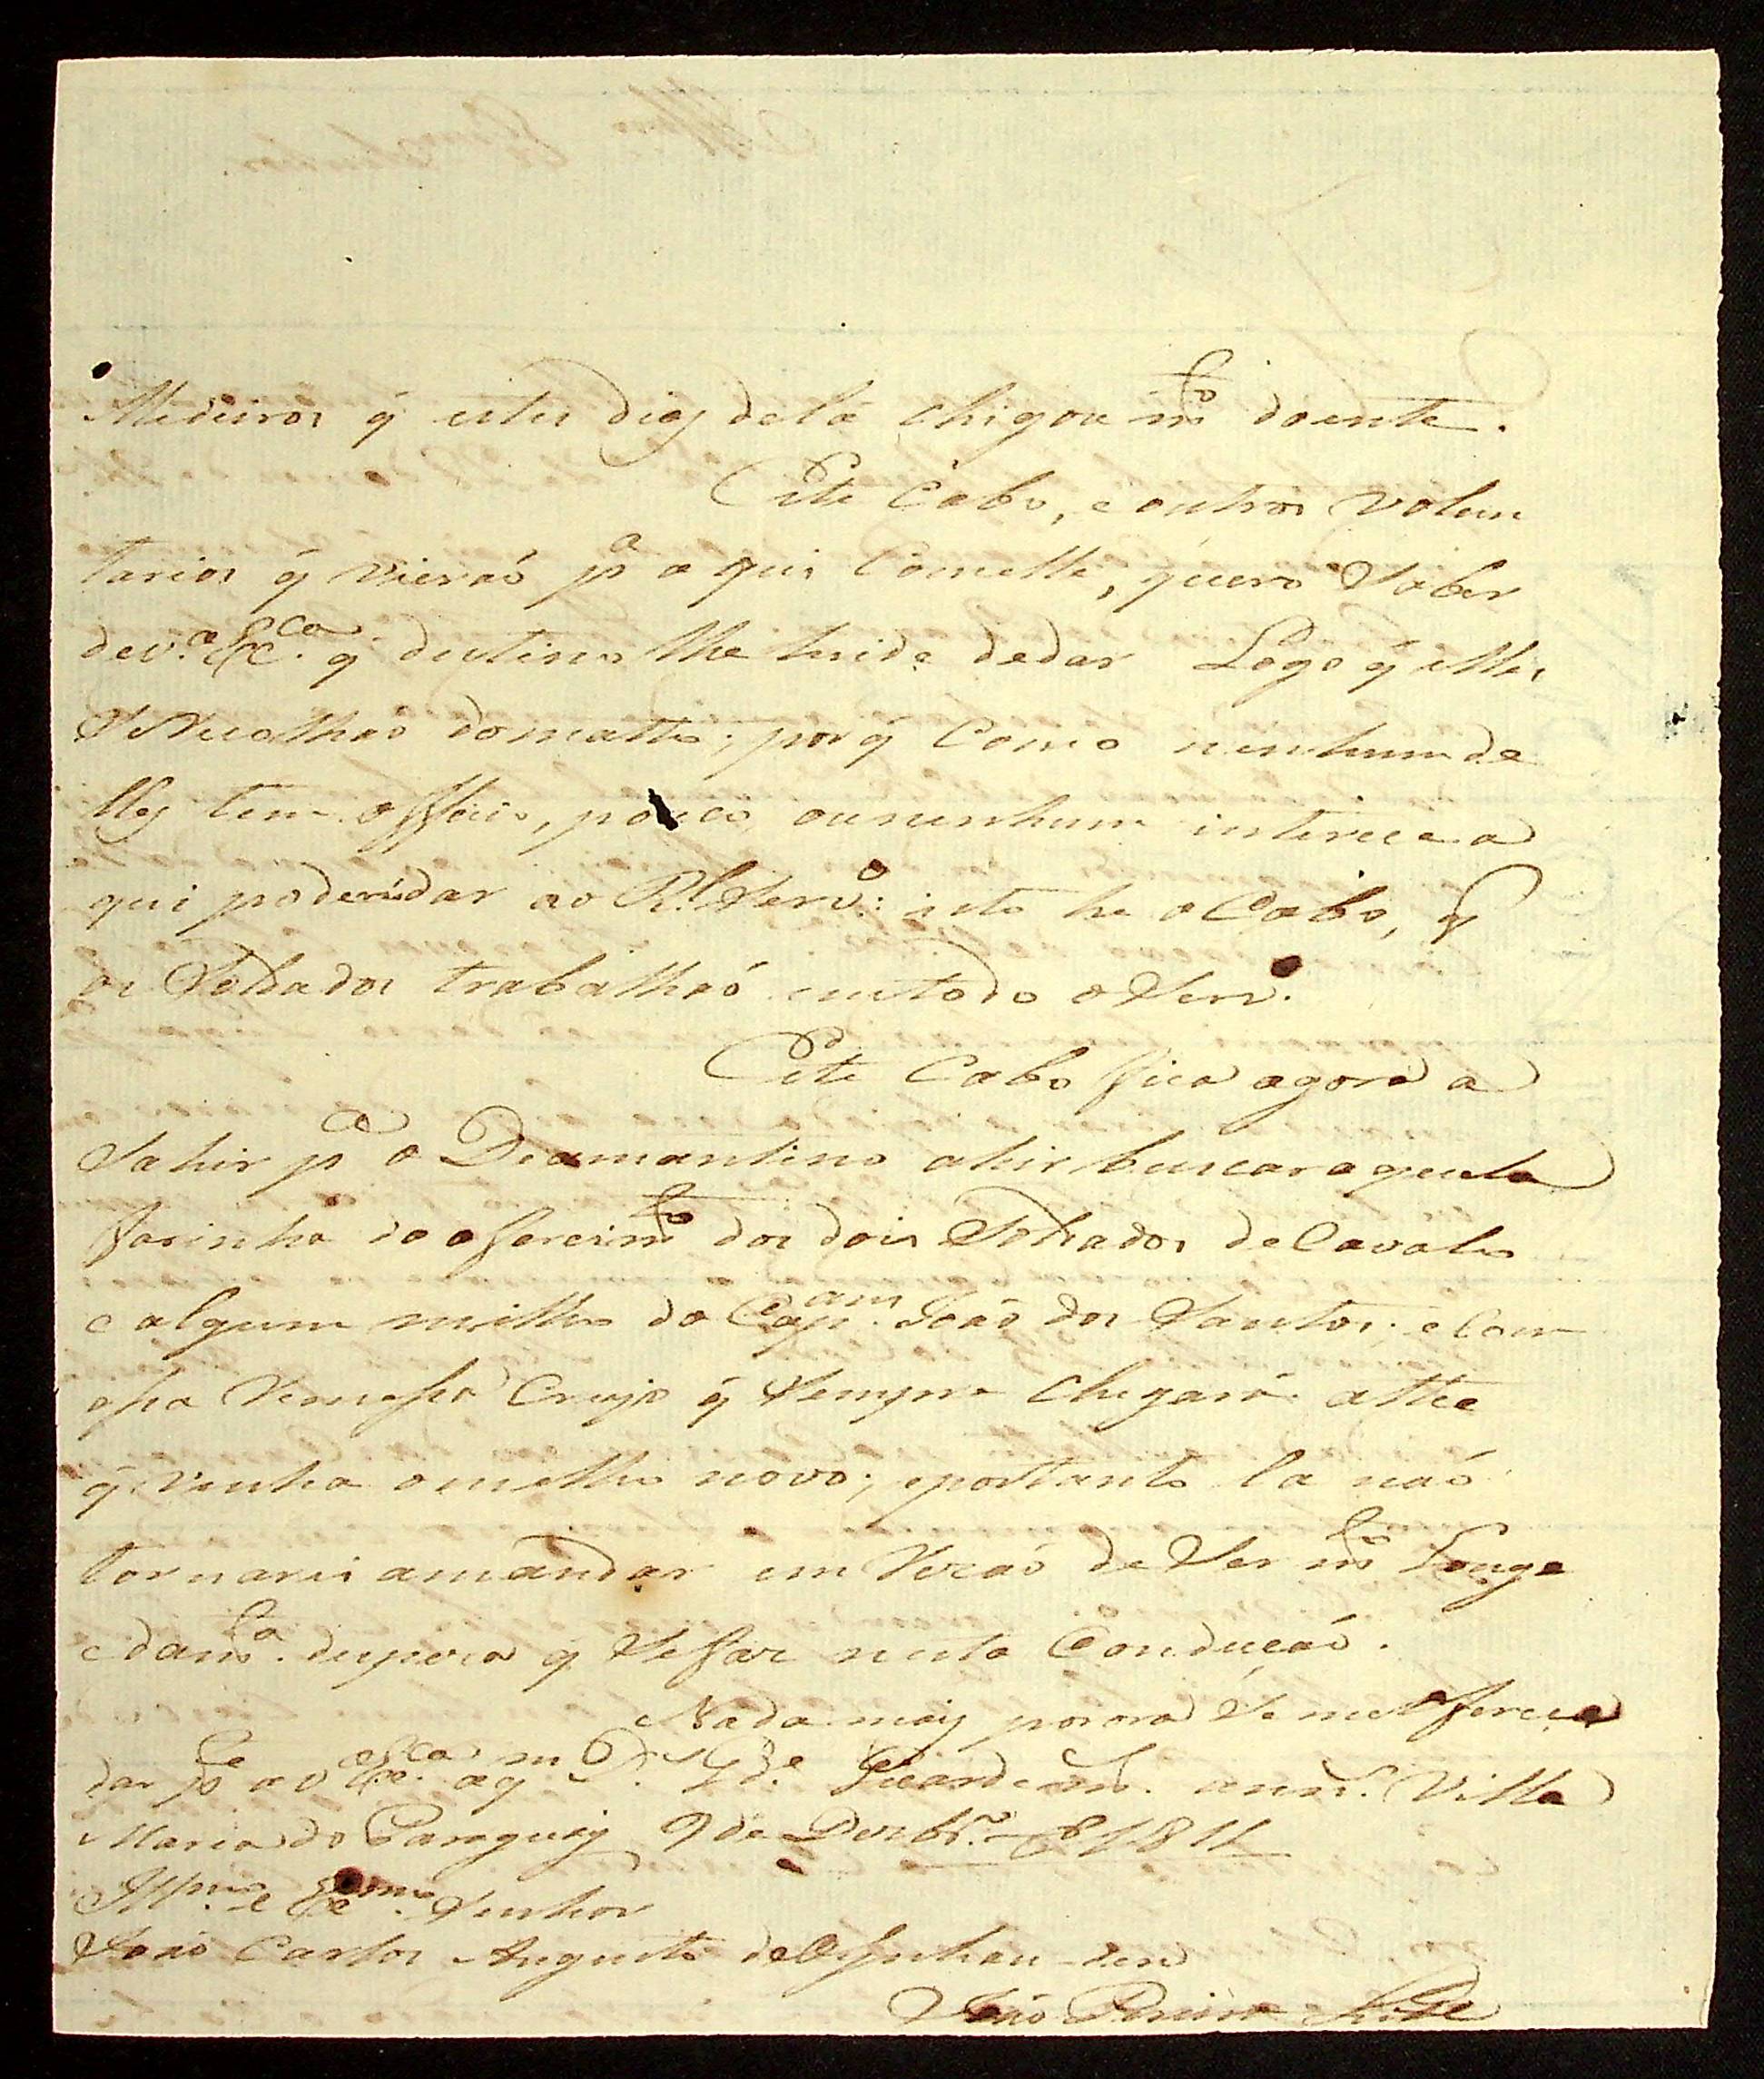 Medeiros q̃ estes dias de lá chigou m.to doente.
Este Cabo, e outros volun
tarios q̃ vieraõ p.a a qui Comelle, quero Saber
de v.a Ex.ca q̃ destino lhe heide dedar Logo q̃ elles
Se recolhaõ domatto; por q̃ Como nenhum de
lles tem officio, pouco, ou nenhum interece a
qui poderá dar ao R.l Serv.o: isto he o Cabo, q̃
os Soldados trabalhaõ emtodo o Serv.o
Este Cabo fica agora a
Sahir p.a o Diamantino ahir buscar aquela
farinha do oferecim.to dos dois Soldados de Cavalo
e algum milho do Cap.am Joaõ dos Santos; e Com
essa remessa Creyo q̃ Sempre chegará athe
q̃ venha o milho novo; eportanto la naõ
tornarei amandar em rezaõ de Ser m.to Longe
e dam.ta despeza q̃ Sefaz nesta Conduçaõ.
Nada mais porora Se me offerece
dar p.te a v Ex.ca aq.m D.s G.de m. ann.s Villa
Maria do Paraguay 9 de Dezbr.o de 1811
Ill.mo e Ex.mo Senhor
Joaõ Carlos Augusto de Oeynhausen
Joaõ Pereira Leite